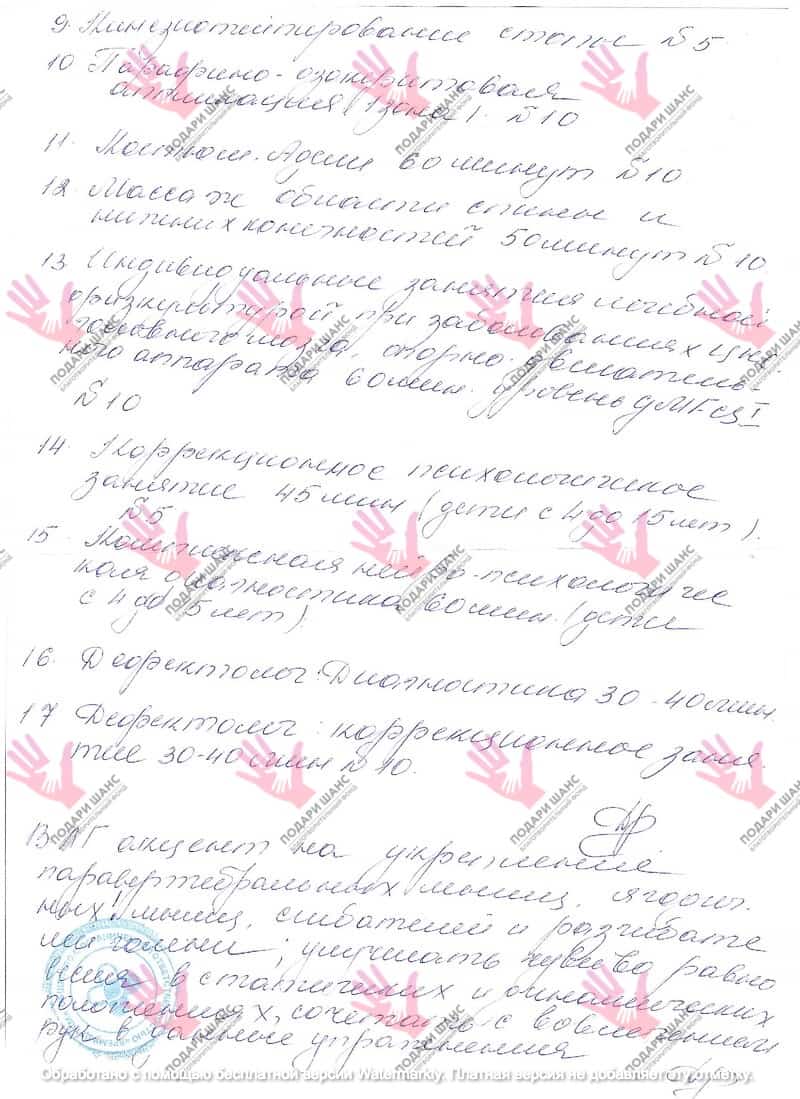 9. Кинезиотейпирование стопы №5
10 Парафино-озокеритовая
аппликация (1 зона). №10
11. Костюм Адели 60 минут №10
12. Массаж области спины и
нижних конечностей 50 минут №10
13 Индивидуальные занятия лечебной
физкультурой при заболеваниях ЦНС
головного мозга, опорно-двигатель-
ного аппарата 60 мин. уровень GMFCS I
№10
14. Коррекционное психологическое
занятие 45 мин (дети с 4 до 15 лет).
№5
15. Комплексная нейро-психологичес
кая диагностика 60 мин. (дети
с 4 до 15 лет)
16. Дефектолог: Диагностика 30-40 мин.
17 Дефектолог: коррекционное заня-
тие 30-40 мин №10.
В ЛГ акцент на укрепление
паравертебральных мышц, ягодич-
ных мышц, сгибателей и разгибате
лей голени; улучшать чувство равно
весия в статических и динамических
положениях, сочетать с вовлечением
рук в данные упражнения
ПОДАРИ ШАНС
БЛАГОТВОРИТЕЛЬНЫЙ ФОНД
Обработано с помощью бесплатной версии Watermarkly. Платная версия не добавляет эту отметку.